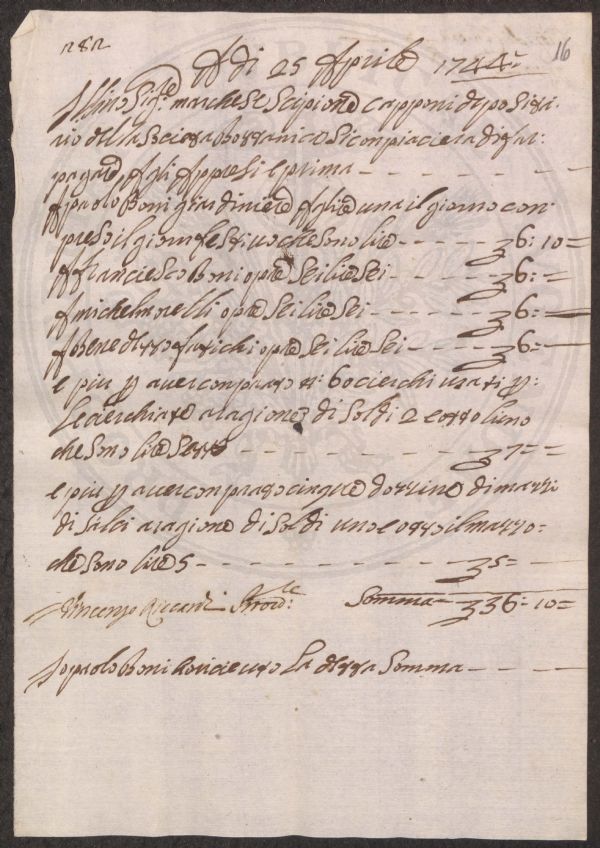 282
16
A di 25 Aprile 1744
Ill.mo Sig.re marchese Scipione Capponi depositta
rio della Società Bottanica si conpiacierà di far
pagare A gli Appresi e prima
A paolo Boni giardiniere A lire una il giorno con
preso il giorno festiuo che sono lire 6: 10 =
A franciesco Boni opre sei lire sei 6: =
A michel morelli opre sei lire sei 6: =
A Benedetto opre sei lire sei 6 =
e piu p auer conprato n: 60 cierchi p:
le a ragione di soldi 2 e otto l'uno
che sono lire sette 7 =
e piu p auer conprato cinque dozzine di mazzi
di salci a ragione di soldi uno e otto il mazzo
che sono lire 5 5 =
Vincenzo Prou.re Somma 36: 10 =
Io paolo Boni ò riceuuto La detta Somma